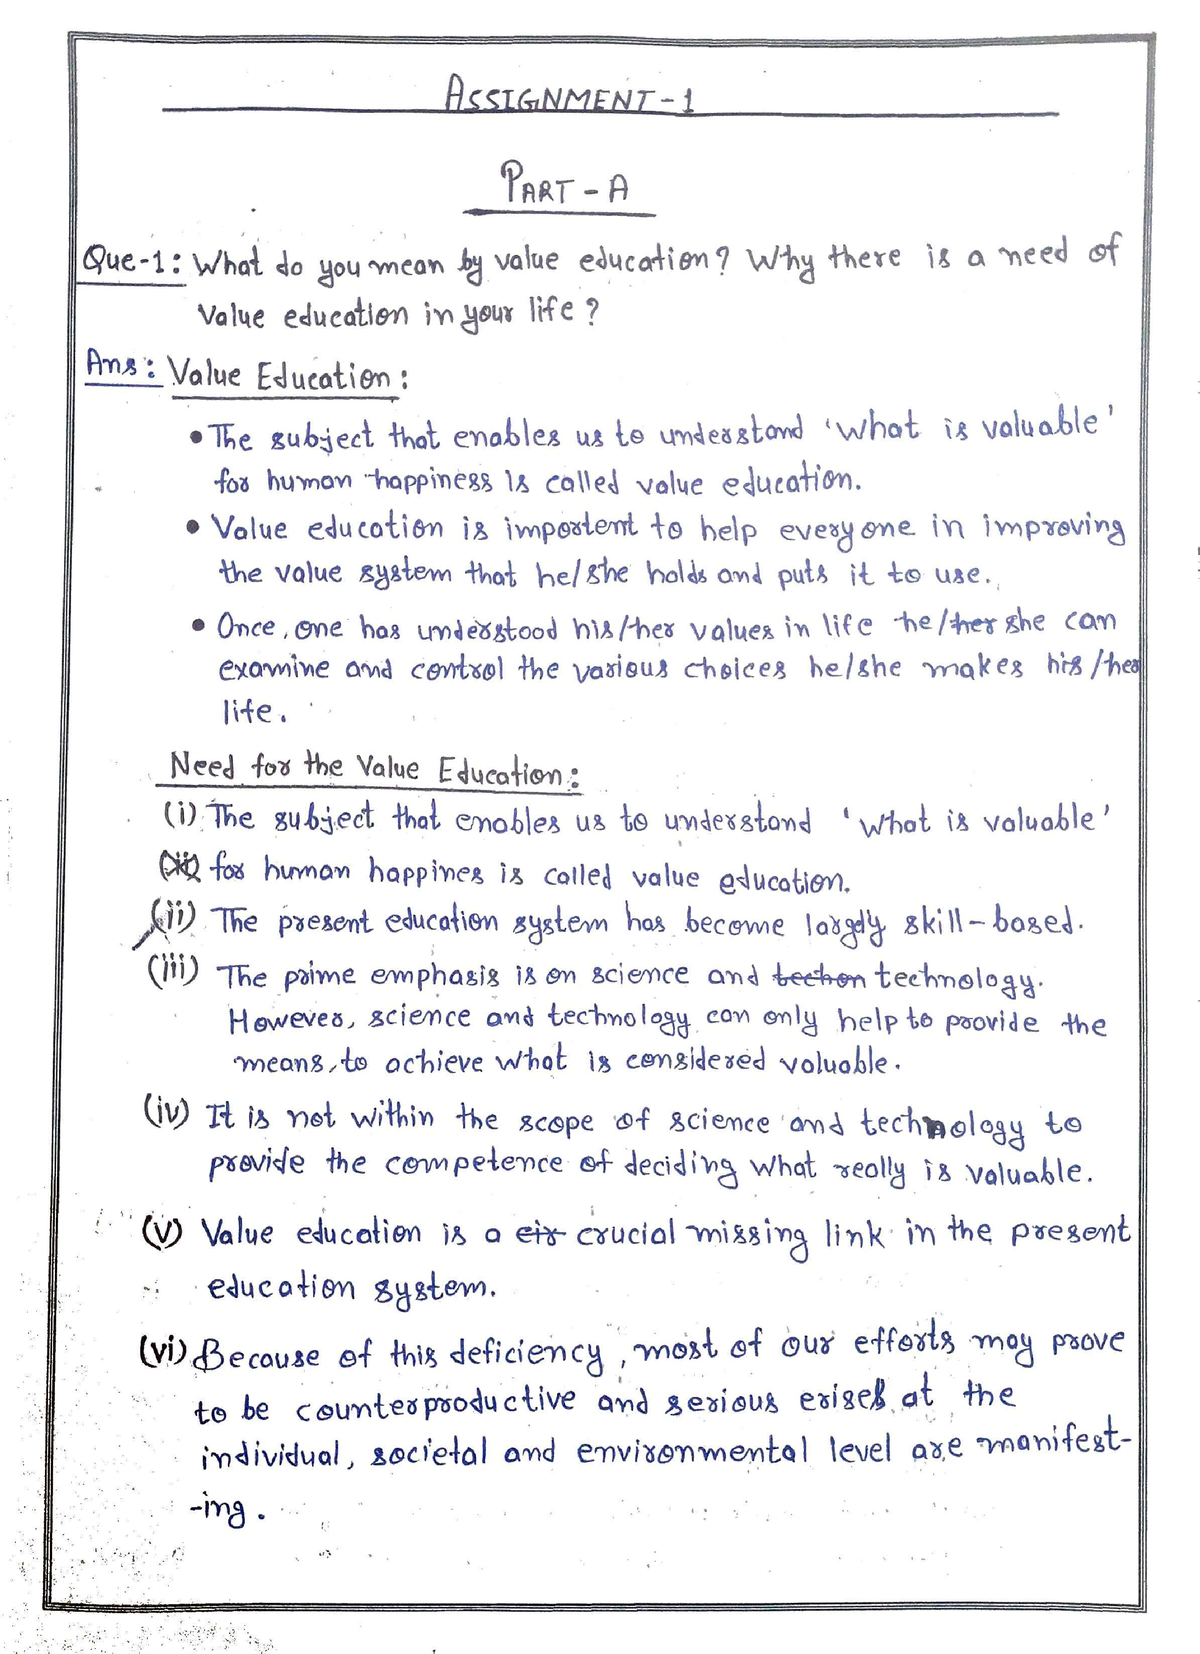 ASSIGNMENT-1
PART-A
Que-1: What do you mean by value education? Why there is a need of
Value education in your life?
Ans: Value Education:
• The subject that enables us to understand 'what is valuable'
for human happiness is called value education.
• Value education is importent to help everyone in improving
the value system that he/she holds and puts it to use.
• Once, one has understood his/her values in life he/her she can
examine and control the various choices he/she makes his/her
life.
Need for the Value Education:
(i) The subject that enables us to understand 'what is valuable'
for human happines is called value education.
(ii) The present education system has become largely skill-based.
(iii) The prime emphasis is on science and techon technology.
However, science and technology can only help to provide the
means, to achieve what is considered valuable.
(iv) It is not within the scope of science and technology to
provide the competence of deciding what really is valuable.
(v) Value education is a cir crucial missing link in the present
education system.
(vi) Because of this deficiency, most of our efforts may prove
to be counterproductive and serious erises at the
individual, societal and environmental level are manifest-
-ing.